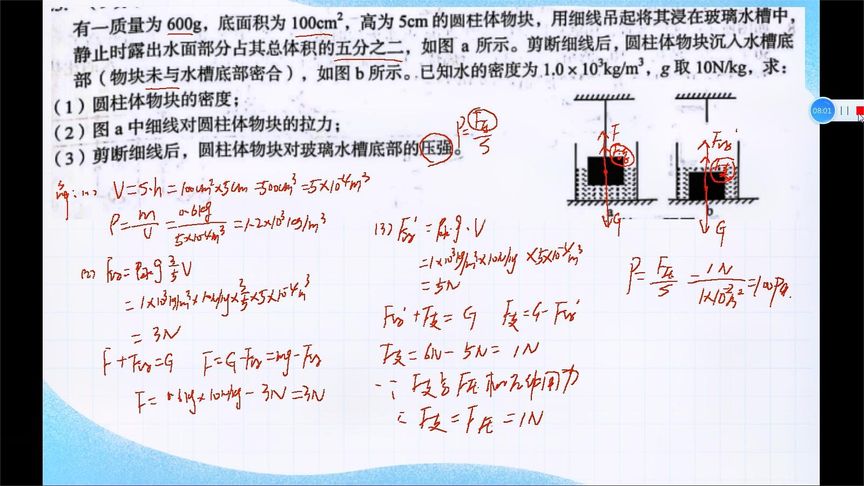 有一质量为600g，底面积为100cm²，高为5cm的圆柱体物块，用细线吊起将其浸在玻璃水槽中，
静止时露出水面部分占其总体积的五分之二，如图a所示。剪断细线后，圆柱体物块沉入水槽底
部（物块未与水槽底部密合），如图b所示。已知水的密度为1.0×10³kg/m³，g取10N/kg，求：
（1）圆柱体物块的密度；
（2）图a中细线对圆柱体物块的拉力；
（3）剪断细线后，圆柱体物块对玻璃水槽底部的压强。
P=F压/S
F
F浮
G
a
F浮'
G
b
08:01
(1) V=S·h=100cm²×5cm=500cm³=5×10⁻⁴m³
ρ=m/V=0.6kg/5×10⁻⁴m³=1.2×10³kg/m³
(2) F浮=ρ水g 3/5 V
=1×10³kg/m³×10N/kg×3/5×5×10⁻⁴m³
=3N
F+F浮=G F=G-F浮=mg-F浮
F=0.6kg×10N/kg-3N=3N
(3) F浮'=ρ水g·V
=1×10³kg/m³×10N/kg×5×10⁻⁴m³
=5N
F浮'+F支=G F支=G-F浮'
F支=6N-5N=1N
∵F支与F压相互作用力
∴F支=F压=1N
P=F压/S=1N/1×10⁻²m²=100Pa.